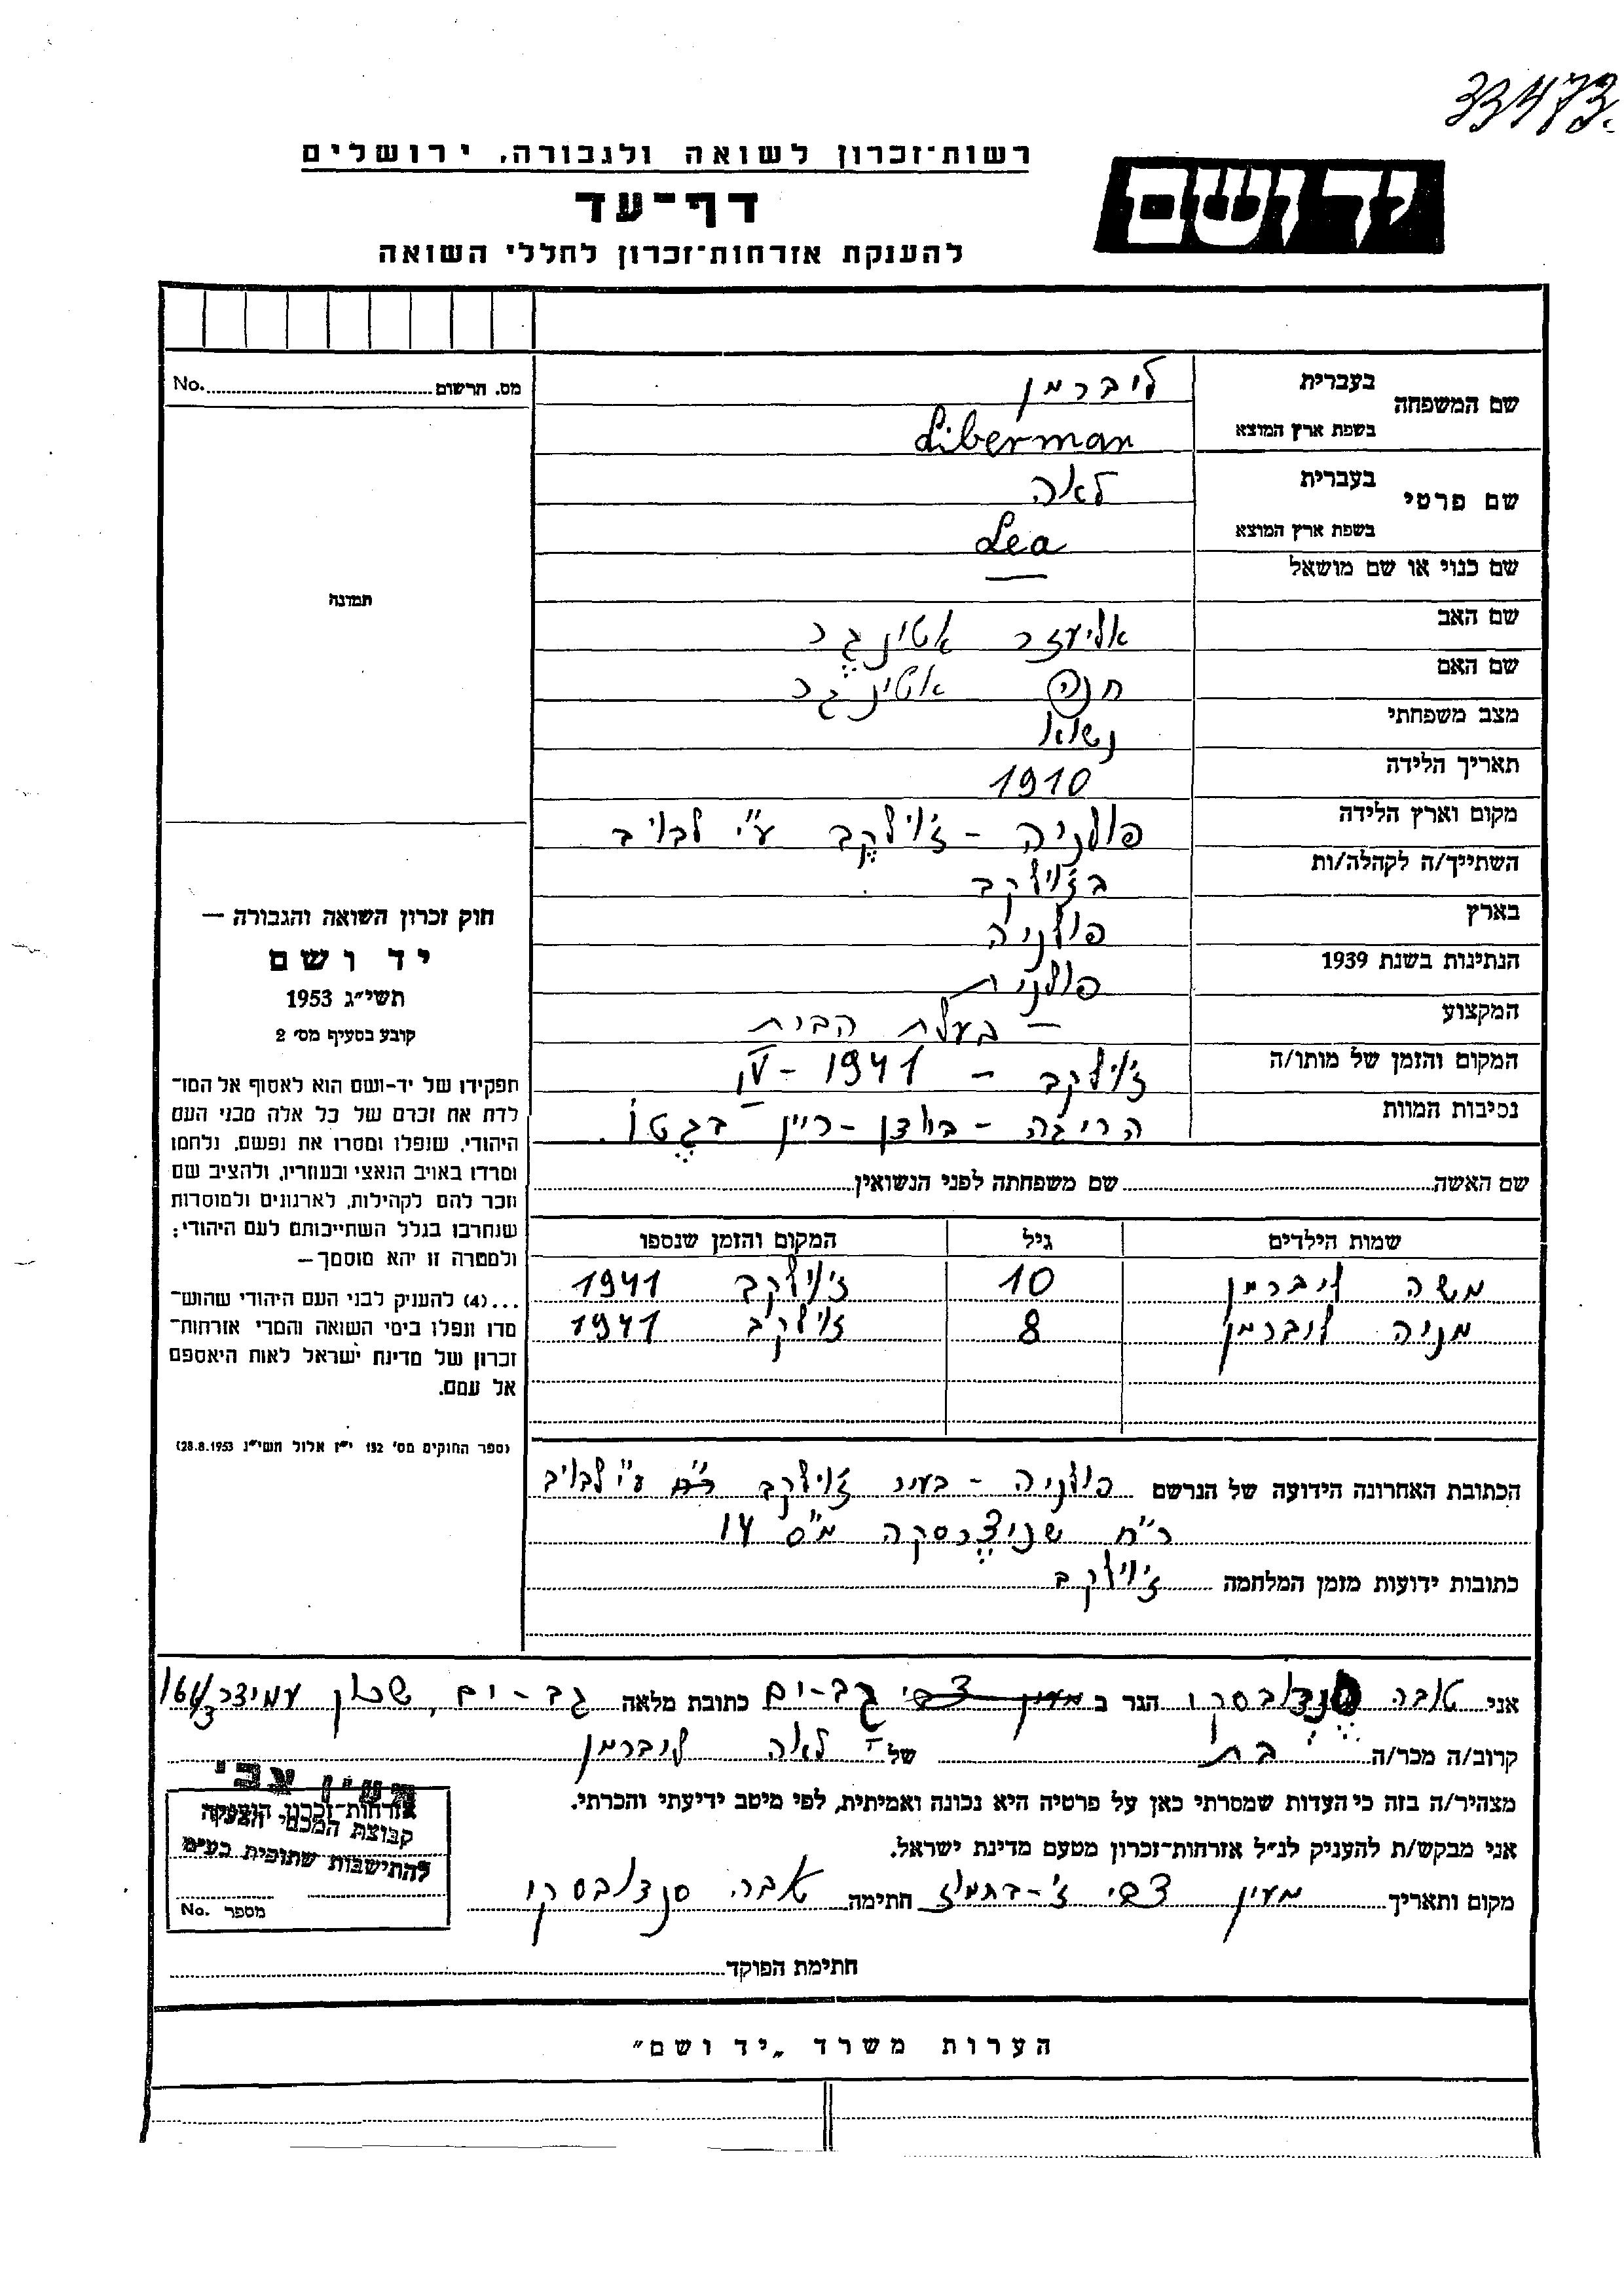 33473.
רשות־זכרון לשואה ולגבורה, ירושלים
יד ושם
דף־עד
להענקת אזרחות־זכרון לחללי השואה
מס. הרשום No.
שם המשפחה בעברית ליברמן
בשפת ארץ המוצא Liberman
שם פרטי בעברית לאה
בשפת ארץ המוצא Lea
שם כנוי או שם מושאל —
תמונה
שם האב אליעזר אטינגר
שם האם חנה אטינגר
מצב משפחתי נשוא
תאריך הלידה 1910
מקום וארץ הלידה פולניה - ז'ולקב ע"י לבוב
השתייך/ה לקהלה/ות בז'ולקב
בארץ פולניה
הנתינות בשנת 1939 פולנית
המקצוע — בעלת הבית
המקום והזמן של מותו/ה ז'ולקב - 1941 - IV
נסיבות המוות הריגה - בגטו.
חוק זכרון השואה והגבורה —
יד ושם
תשי״ג 1953
קובע בסעיף מס׳ 2
תפקידו של יד-ושם הוא לאסוף אל המו־
לדת את זכרם של כל אלה מבני העם
היהודי, שנפלו ומסרו את נפשם, נלחמו
ומרדו באויב הנאצי ובעוזריו, ולהציב שם
וזכר להם לקהילות, לארגונים ולמוסדות
שנחרבו בגלל השתייכותם לעם היהודי;
ולמטרה זו יהא מוסמך—
...(4) להעניק לבני העם היהודי שהוש־
מדו ונפלו בימי השואה והמרי אזרחות־
זכרון של מדינת ישראל לאות היאספם
אל עמם.
(ספר החוקים מס׳ 132 י״ז אלול תשי״ג 28.8.1953)
שם האשה שם משפחתה לפני הנשואין
שמות הילדים גיל המקום והזמן שנספו
משה ליברמן 10 ז'ולקב 1941
מניה ליברמן 8 ז'ולקב 1941
הכתובת האחרונה הידועה של הנרשם פולניה - בעיר ז'ולקב ע"י לבוב
ר"ח מ"ס 14
כתובות ידועות מזמן המלחמה ז'ולקב
אני טובה סנדובסקי הגר ב מעין צבי גב-ים כתובת מלאה גב-ים, שכון עמידר
קרוב/ה מכר/ה בת של לאה ליברמן
מצהיר/ה בזה כי העדות שמסרתי כאן על פרטיה היא נכונה ואמיתית, לפי מיטב ידיעתי והכרתי.
אני מבקש/ת להעניק לנ״ל אזרחות־זכרון מטעם מדינת ישראל.
מקום ותאריך מעין צבי ז'-בתמוז חתימה טובה סנדובסקי
מעין צבי
אזרחות־זכרון הוענקה
קבוצת המכבי הצעיר
להתישבות שתופית בע״מ
מספר No.
חתימת הפוקד
הערות משרד „יד ושם״